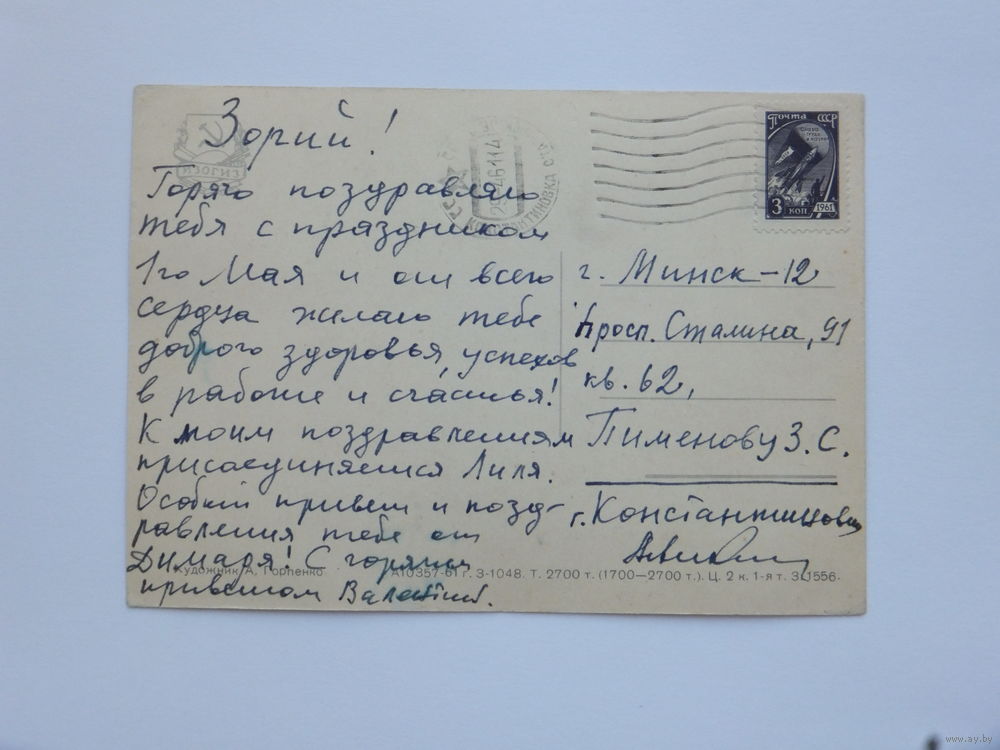 Зорий!
Горячо поздравляю
тебя с праздником
1го Мая и от всего
сердца желаю тебе
доброго здоровья, успехов
в работе и счастья!
К моим поздравлениям
присоединяется Лиля.
Особый привет и позд-
равления тебе от
Димаря! С горячим
приветом Валентин.
Почта СССР
3 коп
1961
г. Минск-12
Просп. Сталина, 91
кв. 62,
Пименову З. С.
г. Константиновка
Художник А. Горпенко
А10357-61 г. З-1048. Т. 2700 т. (1700—2700 т.). Ц. 2 к. 1-я т. З. 1556.
www.ay.by